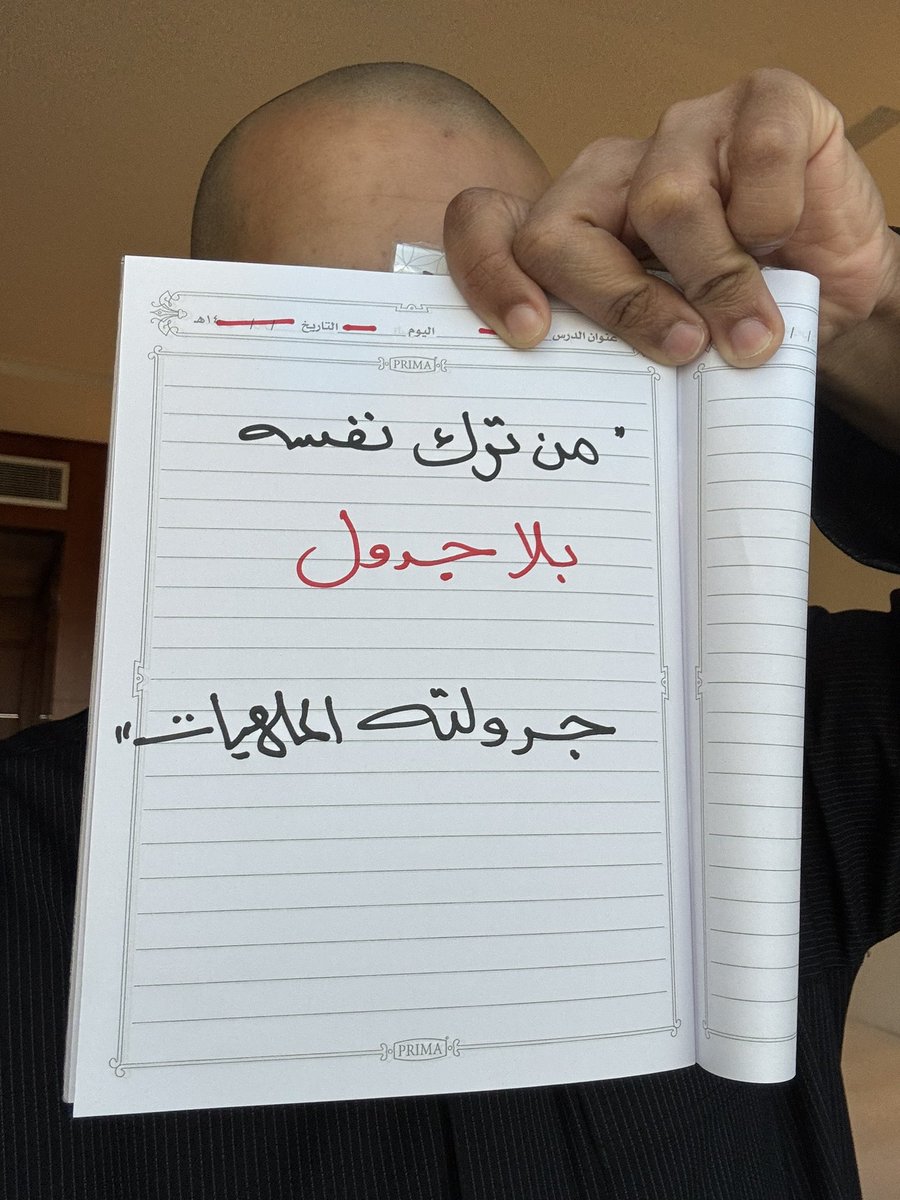 عنوان الدرس اليوم التاريخ ١٤هـ
PRIMA
"من ترك نفسه
بلا جدول
جدولته الملهيات"
PRIMA